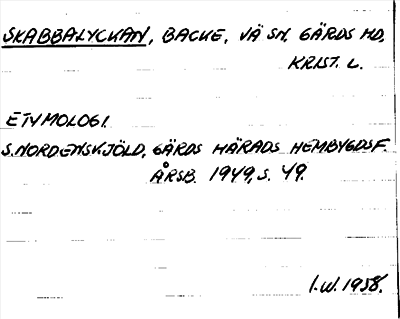 SKABBALYCKAN, BACKE, VÄ SN. GÄRDS HD,
KRIST. L.
ETYMOLOGI
S. NORDENSKJÖLD, GÄRDS HÄRADS HEMBYGDSF.
ÅRSB. 1949, S. 49.
I.W. 1958.